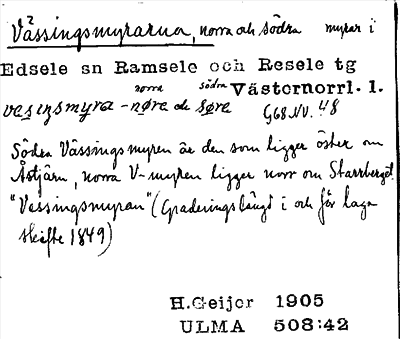 Vässingsmyrarna, norra och södra myrar i
Edsele sn Ramsele och Resele tg
norra södra Västernorrl. l.
vesıŋsmyra - nøre de søre G68.NV.48
Södra Vässingsmyren är den som ligger öster om
Åstjärn, norra V-myren ligger norr om Starrberget.
"Vessingsmyran" (Graderingslängd i och för laga
skifte 1849)
H.Geijer 1905
ULMA 508:42